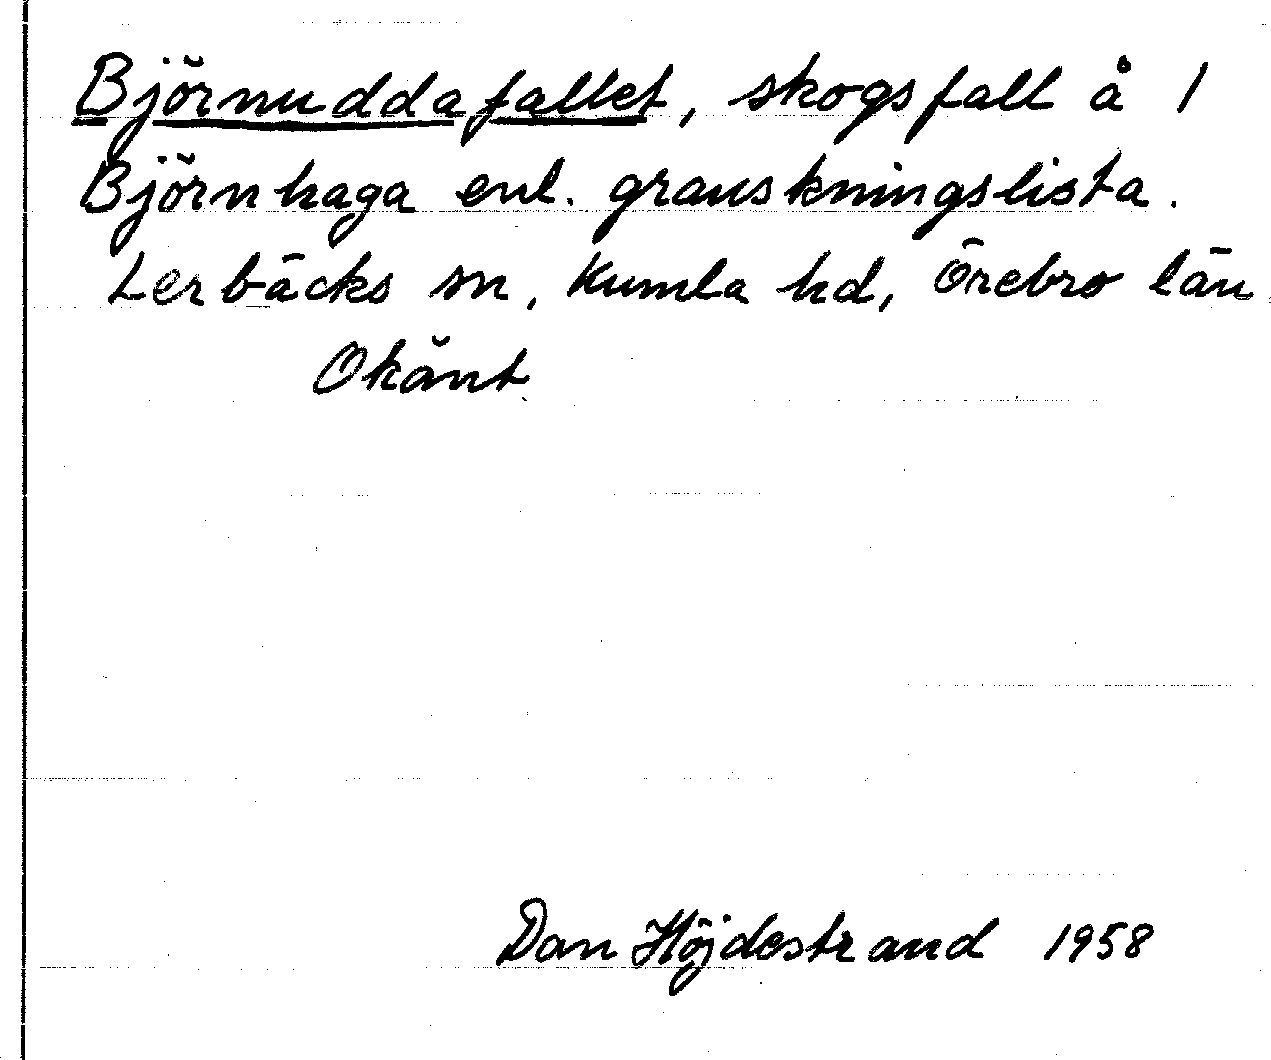 Björnuddafallet, skogsfall å 1
Björnhaga enl. granskningslista.
Lerbäcks sn, Kumla hd, Örebro län
Okänt
Dan Höjdestrand 1958